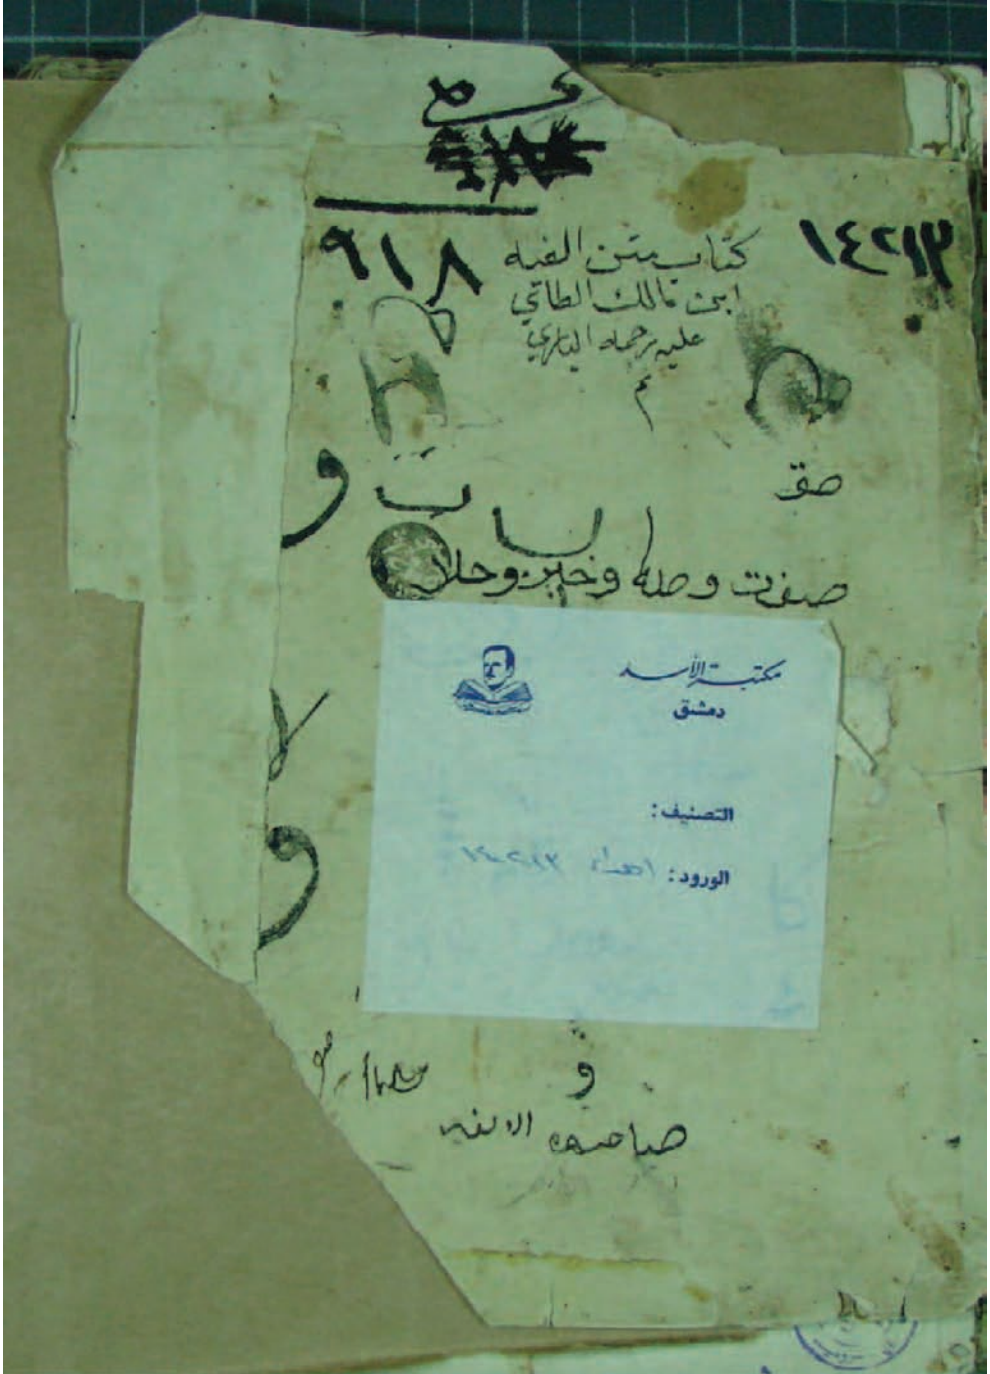 ١٤٢١٣
٩١٨
كتاب متن الفيه
ابن مالك الطائي
عليه رحمة الباري
م
صو
و
صفت وصله وخبر وحلا
مكتبة الأسد
دمشق
التصنيف:
الورود: اهداء ١٤٢١٣
و
و
صاحب الالفيه